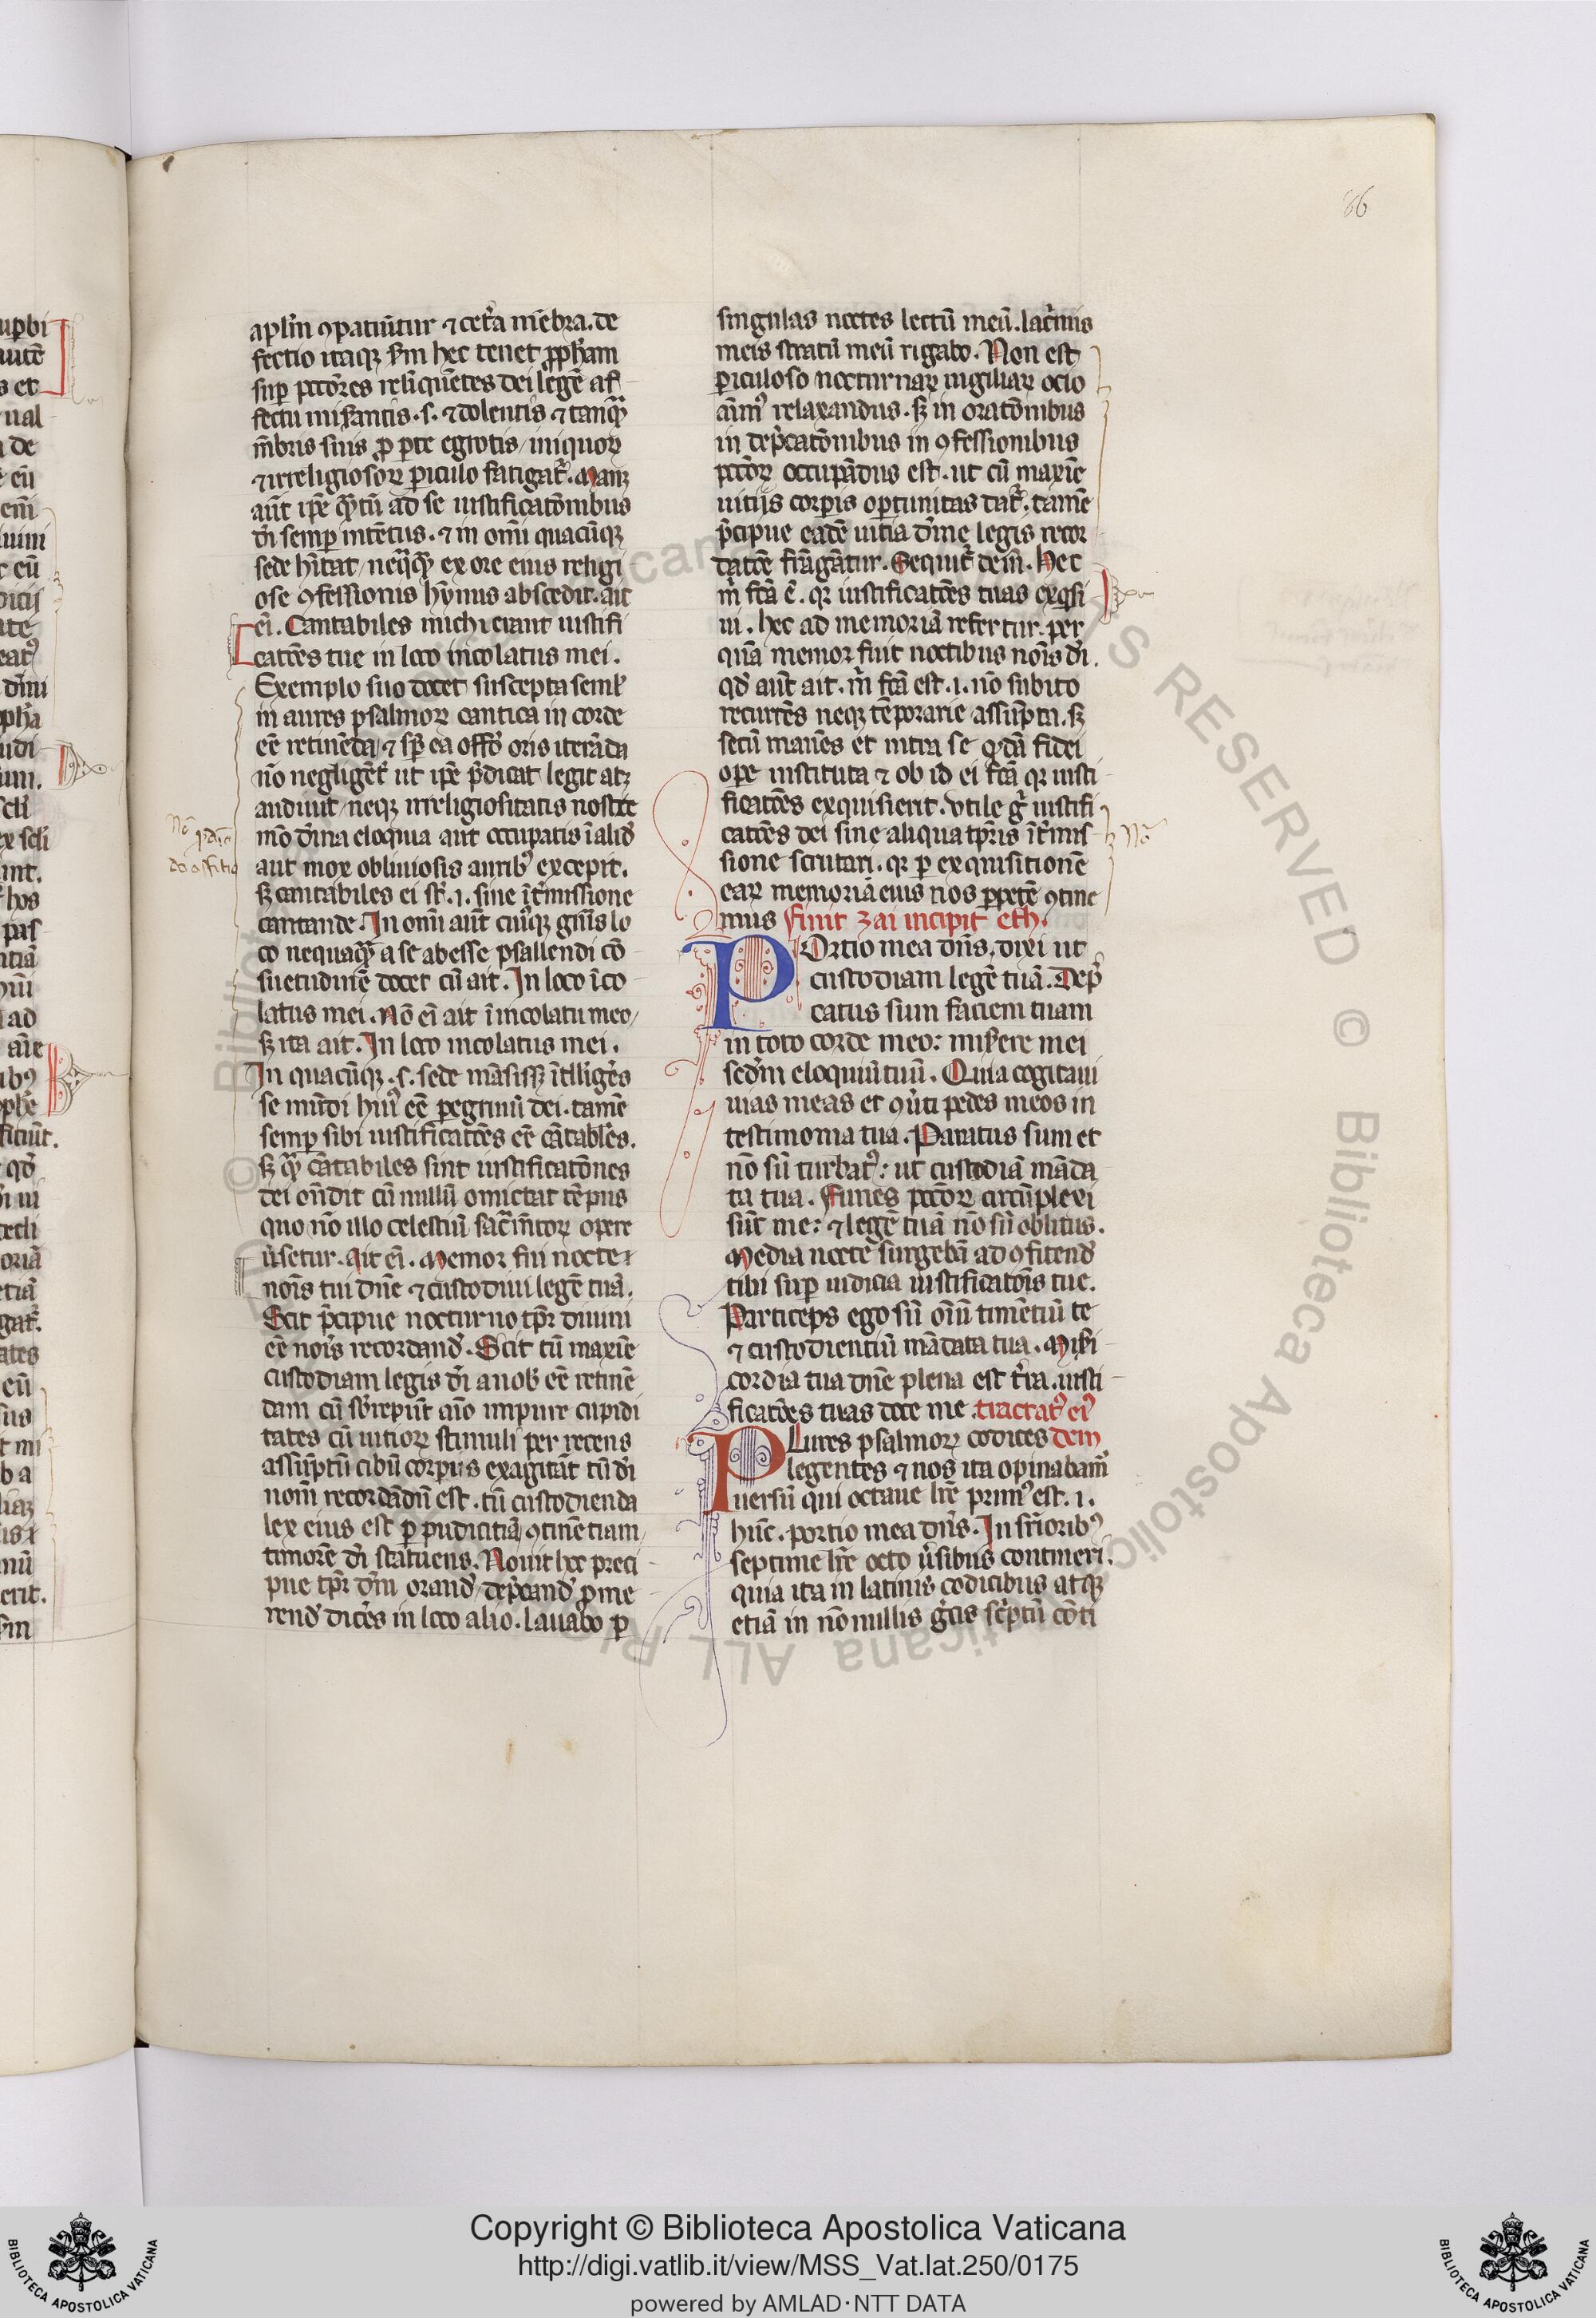 86
apl'm ꝯpatiūtur ⁊ cet̄a mēbra. de
fectio itaqꝫ s̄m hec tenet ꝓph̄am
sup pctōres relīquētes dei legē af
fectu mis̄antis .s. ⁊ dolentis ⁊ tanq̄ȝ
m̄bris suis ꝓ pte egrotis / iniquoꝝ
⁊ irreligiosoꝝ ꝑiculo fatigat̄. Manꝫ
aūt ip̄e q̄ntū ad se iustificatōnibus
dī semꝑ intētus . ⁊ in om̄i quacūqꝫ
sede hītat / neq̄q̄ȝ ex ore eius religi
ose ꝯfessionis hȳnus abscedit . ait
eī . Cantabiles michi erant iustifi
catōes tue in loco incolatus mei .
Exemplo suo docet suscepta semł
in aures psalmoꝝ cantica in corde
eē retinēda / ⁊ sꝑ ea offō oris iterāda
nō negligēt̄ ut ip̄e p̄dicat legit atꝫ
audiuit / neqꝫ irreligiositatis nostre
mō dīna eloquia aut occupatis ī alid̄
aut mox obliuiosis auribꝰ excepit .
sꝫ cantabiles ei st̄ .i. sine īt̄missione
cantande . In om̄i aūt cuiꝰqꝫ gn̄is lo
co nequaq̄ȝ a se abesse psallendi cō
suetudinē docet cū ait . In loco īco
latus mei . Nō eī ait ī incolatu meo /
sꝫ ita ait . In loco incolatus mei .
In quacūqꝫ .s. sede māsissꝫ ītlliḡes
se mūdi huiꝰ eē ꝑegrinū dei . tamē
semꝑ sibi iustificatōes eē cātabiles .
sꝫ q̄ȝ cātabiles sint iustificatōnes
dei ondit cū nullū omictat tēpus
quo nō illo celestiū sac̄m̄toꝝ opere
ūsetur . Ait eī . Memor fui nocte
noīs tui dn̄e ⁊ custodiui legē tuā .
Scit p̄cipue nocturno tꝑe diuini
eē nōis recordand̄ . Scit tū maxīe
custodiam legis dī a nob̄ eē retinē
dam cū sb̄repūt aīo impure cupidi
tates cū uitioꝝ stimuli per recens
assūptū cibū corpus exagitāt tū dī
nomē recordādū est . tū custodienda
lex eius est ꝑ pudicitiā ꝯtinētiam /
timorē dī statuens . Nouit hec preci
pue tꝑe dn̄m orand̄ / dep̄cand̄ ꝓme
rend̄ dicēs in loco alio . lauabo ꝑ
singulas noctes lectū meū . lac̄mis
meis stratū meū rigabo . Non est
ꝑiculoso nocturnaꝝ uigiliaꝝ ocio
aīmꝰ relaxandus . sꝫ in oratōnibus
in dep̄catōnibus in ꝯfessionibus
pctōꝝ occupādus est . ut cū maxīe
uitijs corꝑis oꝑtunitas dat̄ . tamē
p̄cipue eadē uitia dīne legis recor
datōe frāgātur . Sequit̄ dem̄ . Hec
m̄ fc̄a ē . qꝛ iustificatōes tuas exqsi
ui . hec ad memoriā refertur . per
quā memor fuit noctibus nōis dī .
qd̄ aūt ait . m̄ fc̄a est .i. nō subito
recurrēs neqꝫ tēporarie assūpta . sꝫ
secū manēs et intra se q̄dā fidei
ope instituta ⁊ ob id ei fc̄a qꝛ iusti
ficatōes exquisierit . Vtile g̊ iustifi
catōes dei sine aliqua tꝑis īt̄mis
sione scrutari . qꝛ ꝑ exquisitionē
eaꝝ memoriā eius nos ꝑpetē ꝯtine
mus finit zai incipit eth .
POrtio mea dn̄s . dixi ut
custodiam legē tuā . Dep̄
catus sum faciem tuam
in toto corde meo : miſere mei
sed̄m eloquiū tuū . Quia cogitaui
uias meas et ꝯūti pedes meos in
testimonia tua . Paratus sum et
nō sū turbatꝰ : ut custodiā māda
ta tua . Funes pctōꝝ circūplexi
sūt me : ⁊ legē tuā nō sū oblitus .
Media nocte surgebā ad ꝯfitend̄
tibi sup iudicia iustificatōis tue .
Particeps ego sū oīū timētiū te
⁊ custodientiū mādata tua . Mis̄i
cordia tua dn̄e plena est t̄ra . iusti
ficatōes tuas doce me . tractatꝰ eiꝰ
PLures psalmoꝝ codices dem
legentes ⁊ nos ita opinabamꝰ
uersū qui octaue lr̄e primꝰ est .i.
hūc . portio mea dn̄s . In sr̄ioribꝰ
septime lr̄e octo ūsibus contineri .
quia ita in latinis codicibus atqꝫ
etiā in nōnullis gc̄is sc̄ptū cōti
Copyright © Biblioteca Apostolica Vaticana
http://digi.vatlib.it/view/MSS_Vat.lat.250/0175
powered by AMLAD·NTT DATA
BIBLIOTECA APOSTOLICA VATICANA
BIBLIOTECA APOSTOLICA VATICANA